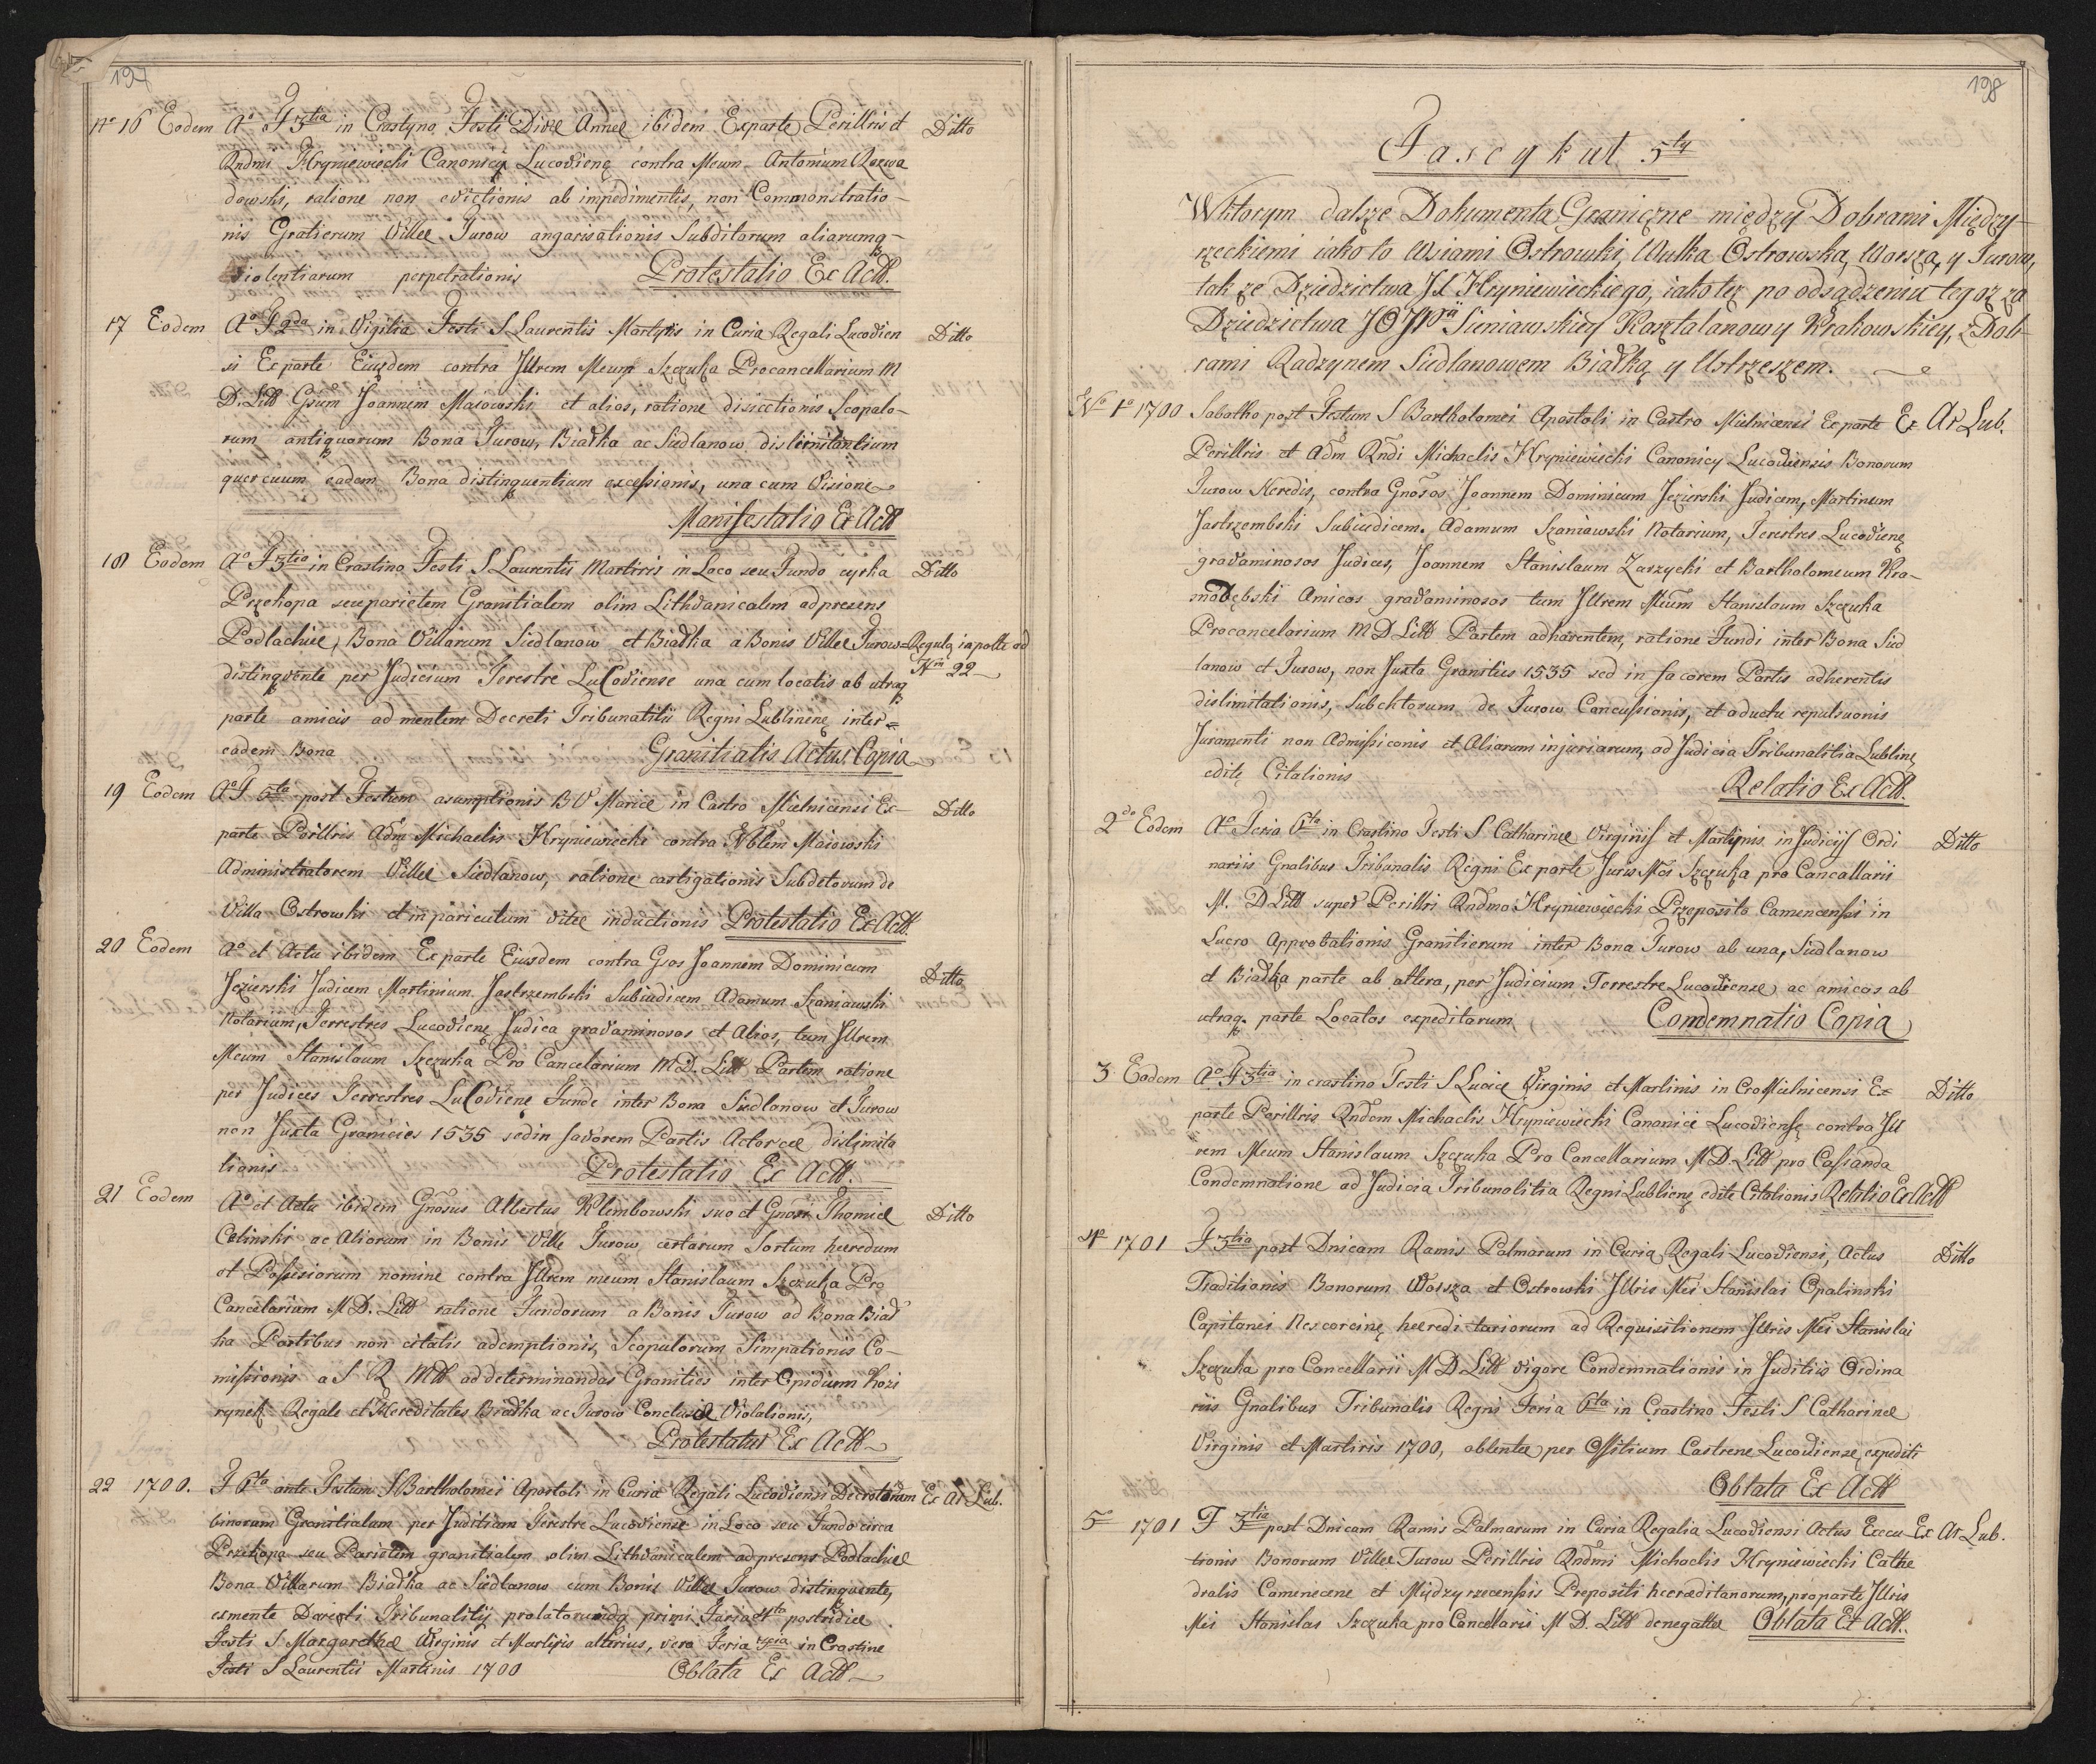 197
No 16 Eodem Ao F 3tia in Crastyno Festi Divæ Annæ ibidem Exparte Perillris et Ditto
Rndmi Hryniewiecki Canonicy Lucoviene contra Meum Antonium Rozwa
dowski, ratione non evictionis ab impedimentis, non Commonstratio-
nis Granicierum Villæ Turow angarisationis Subditorum aliarumq-
violentiarum perpetrationis Protestatio Ex Actt.
17 Eodem Ao F 2da in Vigilia Festi S Laurentis Martyris in Curia Regali Lucovien Ditto
si Ex parte Eiusdem contra Jllrem Meum Szczuka Procancellarium M
D. Litt Gsum Joannem Masowski et alios, ratione disiectionis Scopulo-
rum antiquorum Bona Turow, Białka ac Siedlanow dislimitantium
quercuum eadem Bona distinguentium excessionis, una cum Visione
Manifestatio Ex Actt
18 Eodem Ao F 3tia in Crastino Festi S Laurentis Martiris in Loco seu Fundo cyrka Ditto
Przekopa seu parietem Granitialem olim Lithvanicalem ad presens
Podlachiæ, Bona Villarum Siedlanow et Białka a Bonis Villæ Turow Regulą ia polte ad
distinqvente per Judicium Terestre Lucoviense una cum locatis ab utraq Nm 22
parte amicis ad mentem Decreti Tribunatitii Regni Lublinene inter=
eadem Bona Granitialis Actus Copia
19 Eodem Ao F 5ta post Festum asumptionis B V Mariæ in Castro Mielnicensi Ex Ditto
parte Perillris Adm Michaelis Hryniewiecki contra Nblem Maiowski
Administratorem Villæ Siedlanow, ratione castigationis Subditorum de
Villa Ostrowki et in periculum vitæ inductionis Protestatio Ex Actt.
20 Eodem Ao et Actu ibidem Ex parte Eiusdem contra Gsos Joannem Dominicum Ditto
Jezierski Judicem Martinium Jastrzembski Subiudicem Adamum Szaniawski
Notarium, Terrestres Lucoviene Judica gravaminosos et Alios, tum Jllrem
Meum Stanislaum Szczuka Pro Cancelarium M D. Litt Partem ratione
per Judices Terrestres Lucoviene Funde inter Bona Siedlanow et Turow
non Juxta Granicies 1535 sed in favorem Partis Actoreæ dislimita
tionis Protestatio Ex Actt.
21 Eodem Ao et Actu ibidem Gnosus Albertus Klembowski suo et Gnosi Thomæ Ditto
Celinski ac Aliorum in Bonis Ville Turow certarum Sortum hæredum
et Possesiorum nomine contra Jllrem meum Stanislaum Szczuka Pro
Cancelarium M D. Litt ratione Fundorum a Bonis Turow ad Bona Biał
ka Partibus non citatis ademptionis, Scopulorum Simpationis Co-
missionis a S R Mtt ad determinandas Granities inter Opidum Kozi
rynek Regale et Hereditates Białka ac Turow Conclusæ Violationis,
Protestatur Ex Actt
22 1700. F 6ta ante Festum S Bartholomei Apostoli in Curia Regali Lucoviensi Decretorum Ex Ar Lub.
binorum Granitialum per Juditium Terestre Lucoviense in Loco seu Fundo circa
Przekopa seu Parietem granitialem olim Lithvanicalem ad presens Podlachiæ
Bona Villarum Białka ac Siedlanow cum Bonis Villæ Turow distinquente,
exmente Decreti Tribunalitij prolatorumdq primi Feria 4ta postridiæ
Festi S Margarethæ Virginis et Martiris alterius, vero Feria 3tia in Crastine
Festi S Laurentis Martinis 1700 Oblata Ex Actt
198
Fascykuł 5ty
Wktorym dalsze Dokumenta Graniczne między Dobrami Między-
rzeckiemi iako to Wsiami Ostrowki, Wulka Ostrowska, Worsza, y Turow,
tak ze Dziedzictwa JX Hryniewieckiego, iako tez po odsądzeniu tegoz za
Dziedzictwa JOJPa Sieniawskiey Kasztalanowy Krakowskiey, z Dob-
rami Radzynem Siedlanowem Białką y Ustrzeszem.
No 1o 1700 Sabatho post Festum S Bartholomei Apostoli in Castro Mielnicensi Ex parte Ex Ar Lub.
Perillris et Adm Rndi Michaelis Hryniewiecki Canonicy Lucoviensis Bonorum
Turow Heredis, contra Gnosos Joannem Dominicum Jezierski Judicem, Martinum
Jastrzembski Subiudicem. Adamum Szaniawski Notarium, Terestres Lucoviene
gravaminosos Judices, Joannem Stanislaum Zarzycki et Bartholomeum Kra-
snodębski Amicos gravaminosos tum Jllrem Meum Stanislaum Szczuka
Procancelarium M D Litt Partem adharentem, ratione Fundi inter Bona Sied
lanow et Turow, non Juxta Granities 1535 sed in facorem Partis adherentis
dislimitationis, Subchtorum de Turow Concussionis, et aductu repulsuonis
Juramenti non Admissiconis et Aliarum injuriarum, ad Judicia Tribunalitia Lubline
edite Citationis Relatio Ex Actt.
2do Eodem Ao Feria 6ta in Crastino Festi S Catharinæ Virginis et Martiris in Judicijs Ordi Ditto
nariis Gnalibus Tribunalis Regni Ex parte Juris Mei Szczuka pro Cancellarii
M. D Litt super Perillri Rndmo Hryniewiecki Præposito Camencensi in
Lucro Approbationis Granitierum inter Bona Turow ab una, Siedlanow
et Białka parte ab altera, per Judicium Terrestre Lucoviense ac amicos ab
utraq. parte Locatos expeditorum Condemnatio Copia
3 Eodem Ao F 3tia in crastino Festi S Luciæ Virginis et Martinis in Cro Mielnicensi Ex Ditto
parte Perillris Rndom Michaelis Hryniewiecki Canonici Lucoviense contra Jll
rem Meum Stanislaum Szczuka Pro Cancellarium M D. Litt pro Cassanda
Condemnatione ad Judicia Tribunolitia Regni Lubliene edite Citationis Relatio Ex Actt
4o 1701 F 3tia post Dnicam Ramis Palmarum in Curia Regali Lucoviensi, Actus Ditto
Traditionis Bonorum Worsza et Ostrowki Jllris Mei Stanislai Opalinski
Capitanei Nescorcine hæreditariorum ad Requisitionem Jllris Mei Stanislai
Szczuka pro Cancellarii M D Litt vigore Condemnationis in Juditiis Ordina
riis Gnalibus Tribunalis Regni Feria 6ta in Crastino Festi S Catharinæ
Virginis et Martiris 1700, obtentæ per Offitium Castrene Lucoviense expediti
Oblata Ex Actt
5o 1701 F 3tia post Dnicam Ramis Palmarum in Curia Regalia Lucoviensi Actus Execu Ex Ar Lub.
tionis Bonorum Villæ Turow Perillris Rndmi Michaelis Hryniewiecki Cathe
dralis Camenecene et Międzyrzecensis Prepositi hæreditanorum, pro parte Jllris
Mei Stanislai Szczuka pro Cancellarii M D. Litt denegattæ Oblata Ex Actt.